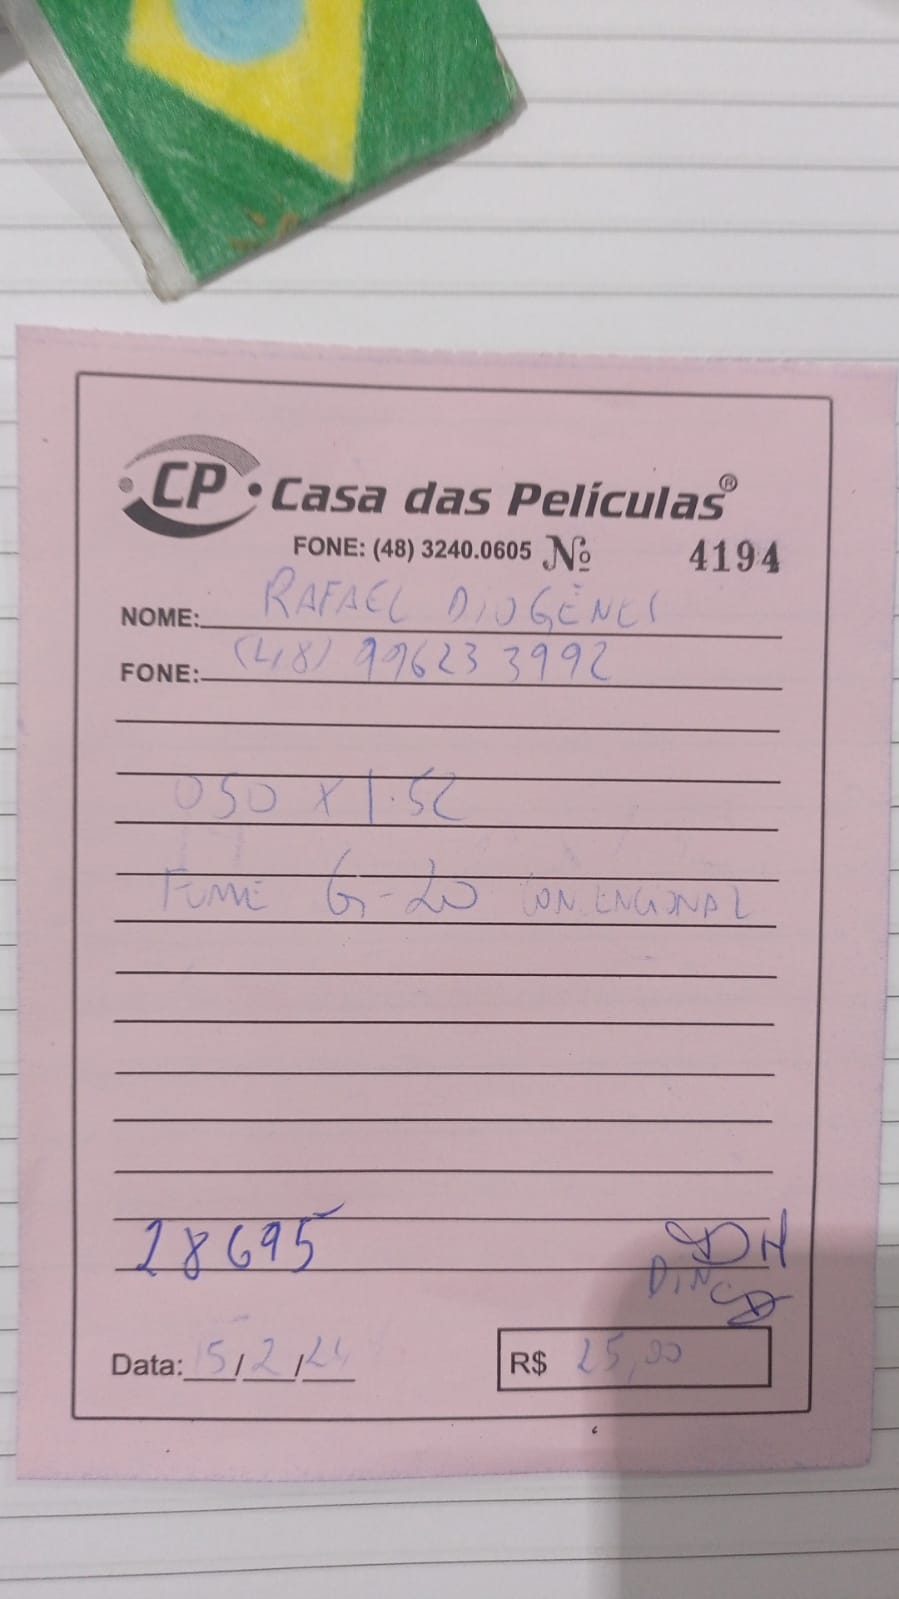 CP Casa das Películas®
FONE: (48) 3240.0605 Nº 4194
NOME: RAFAEL DIOGÊNES
FONE: (48) 99623 3992
050 X 1.52
FUME G-20 CONVENCIONAL
28695 DH
DIN
Data: 15/2/24 R$ 25,00